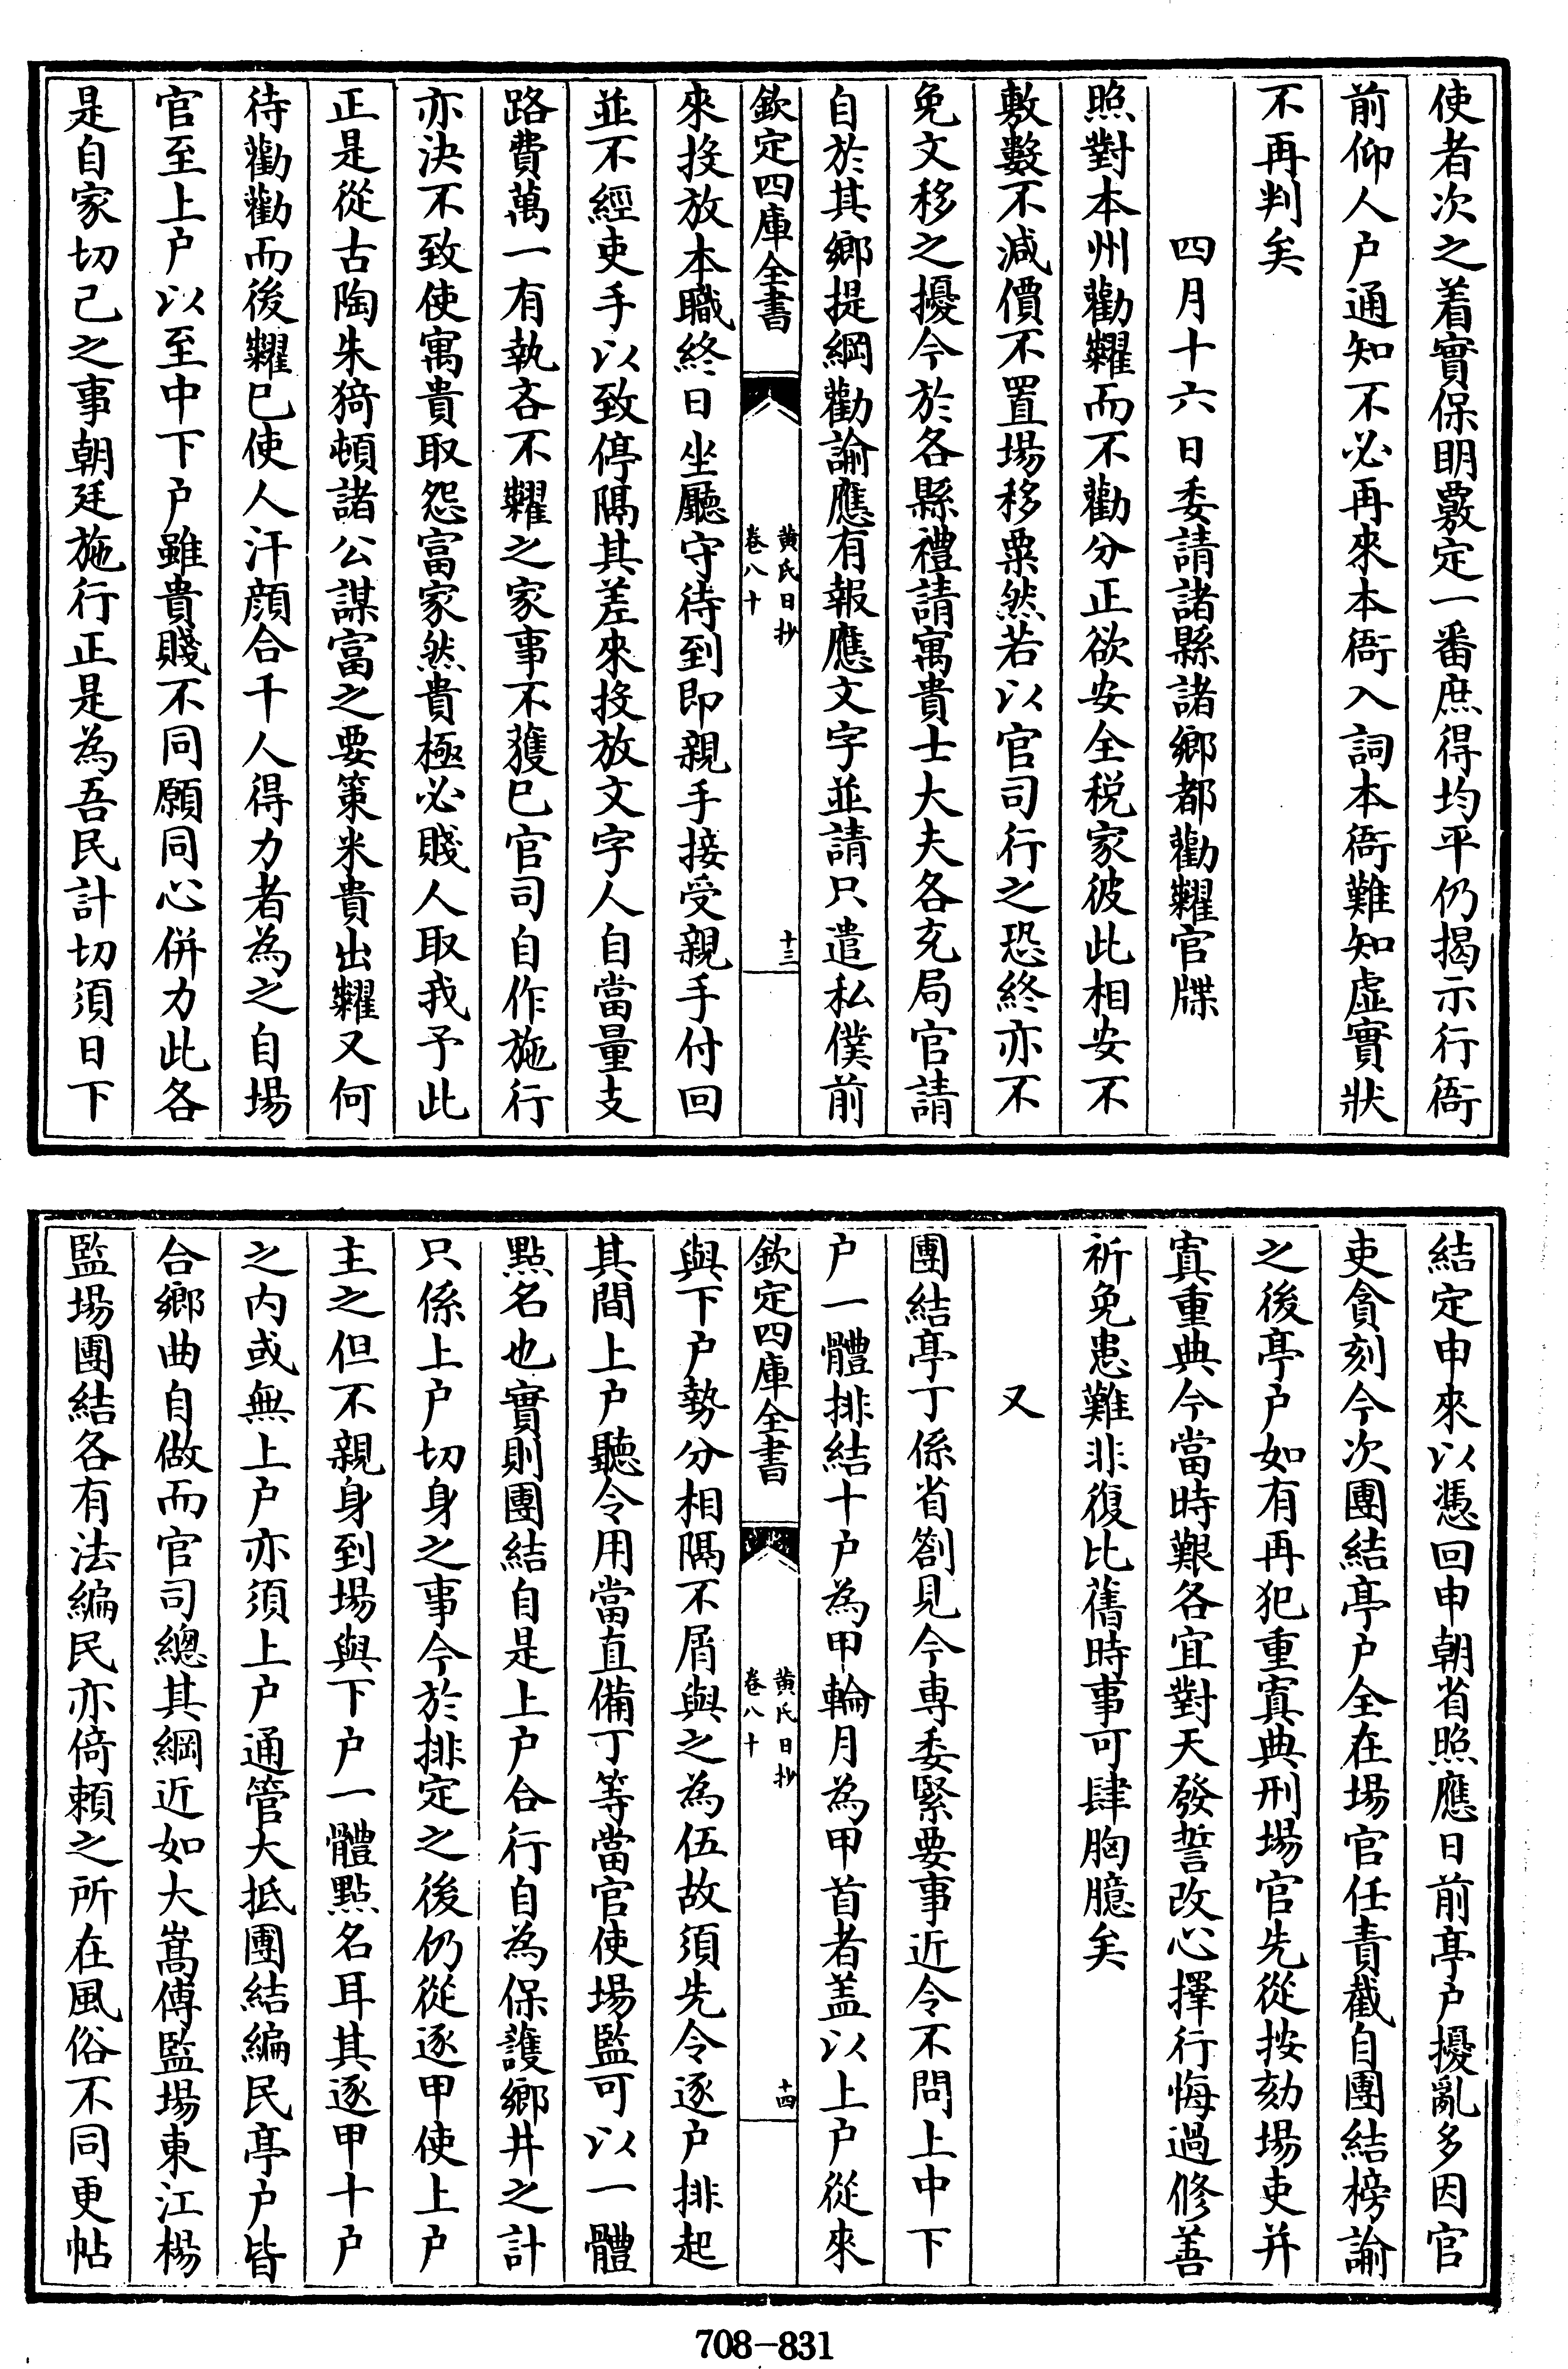 使者次之着實保明覈定一番庶得均平仍揭示行衙
前仰人户通知不必再來本衙入詞本衙難知虛實狀
不再判矣
四月十六日委請諸縣諸鄉都勸糶官牒
照對本州勸糶而不勸分正欲安全税家彼此相安不
敷數不減價不置場移粟然若以官司行之恐終亦不
免文移之擾今於各縣禮請寓貴士大夫各充局官請
自於其鄉提綱勸諭應有報應文字並請只遣私僕前
欽定四庫全書
黄氏日抄
卷八十
十三
來投放本職終日坐廳守待到即親手接受親手付回
並不經吏手以致停隔其差來投放文字人自當量支
路費萬一有執吝不糶之家事不獲已官司自作施行
亦決不致使寓貴取怨富家然貴極必賤人取我予此
正是從古陶朱猗頓諸公謀富之要策米貴出糶又何
待勸勸而後糶已使人汗顔合千人得力者為之自場
官至上户以至中下户雖貴賤不同願同心併力此各
是自家切己之事朝廷施行正是為吾民計切須日下
結定申來以憑回申朝省照應日前亭户擾亂多因官
吏貪刻今次團結亭户全在場官任責截自團結榜諭
之後亭户如有再犯重寘典刑場官先從按劾場吏并
寘重典今當時艱各宜對天發誓改心擇行悔過修善
祈免患難非復比舊時事可肆胸臆矣
又
團結亭丁係省劄見今専委緊要事近令不問上中下
户一體排結十户為甲輪月為甲首者盖以上户從來
欽定四庫全書
黄氏日抄
卷八十
十四
與下户勢分相隔不屑與之為伍故須先令逐户排起
其間上户聽令用當直備丁等當官使場監可以一體
點名也實則團結自是上户合行自為保護鄉井之計
只係上户切身之事今於排定之後仍從逐甲使上户
主之但不親身到場與下户一體點名耳其逐甲十户
之内或無上户亦須上户通管大抵團結編民亭户皆
合鄉曲自做而官司總其綱近如大嵩傅監場東江楊
監場團結各有法編民亦倚賴之所在風俗不同更帖
708-831